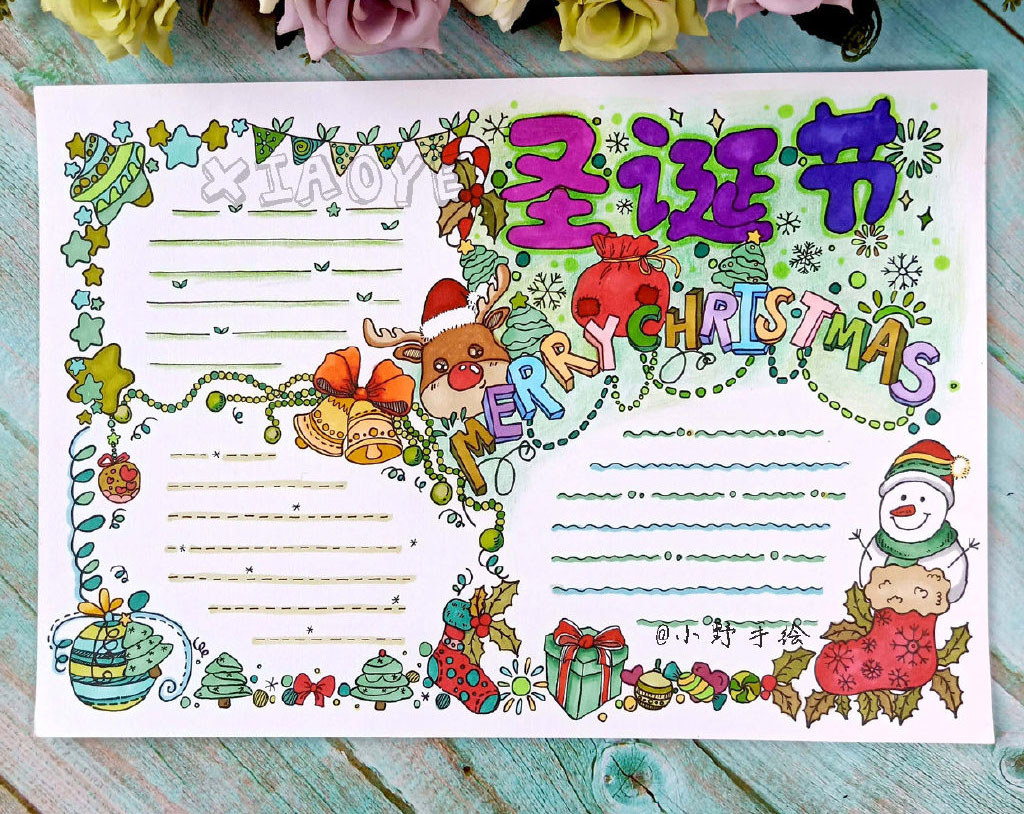 XIAOYE
圣诞节
MERRY CHRISTMAS
@小野手绘